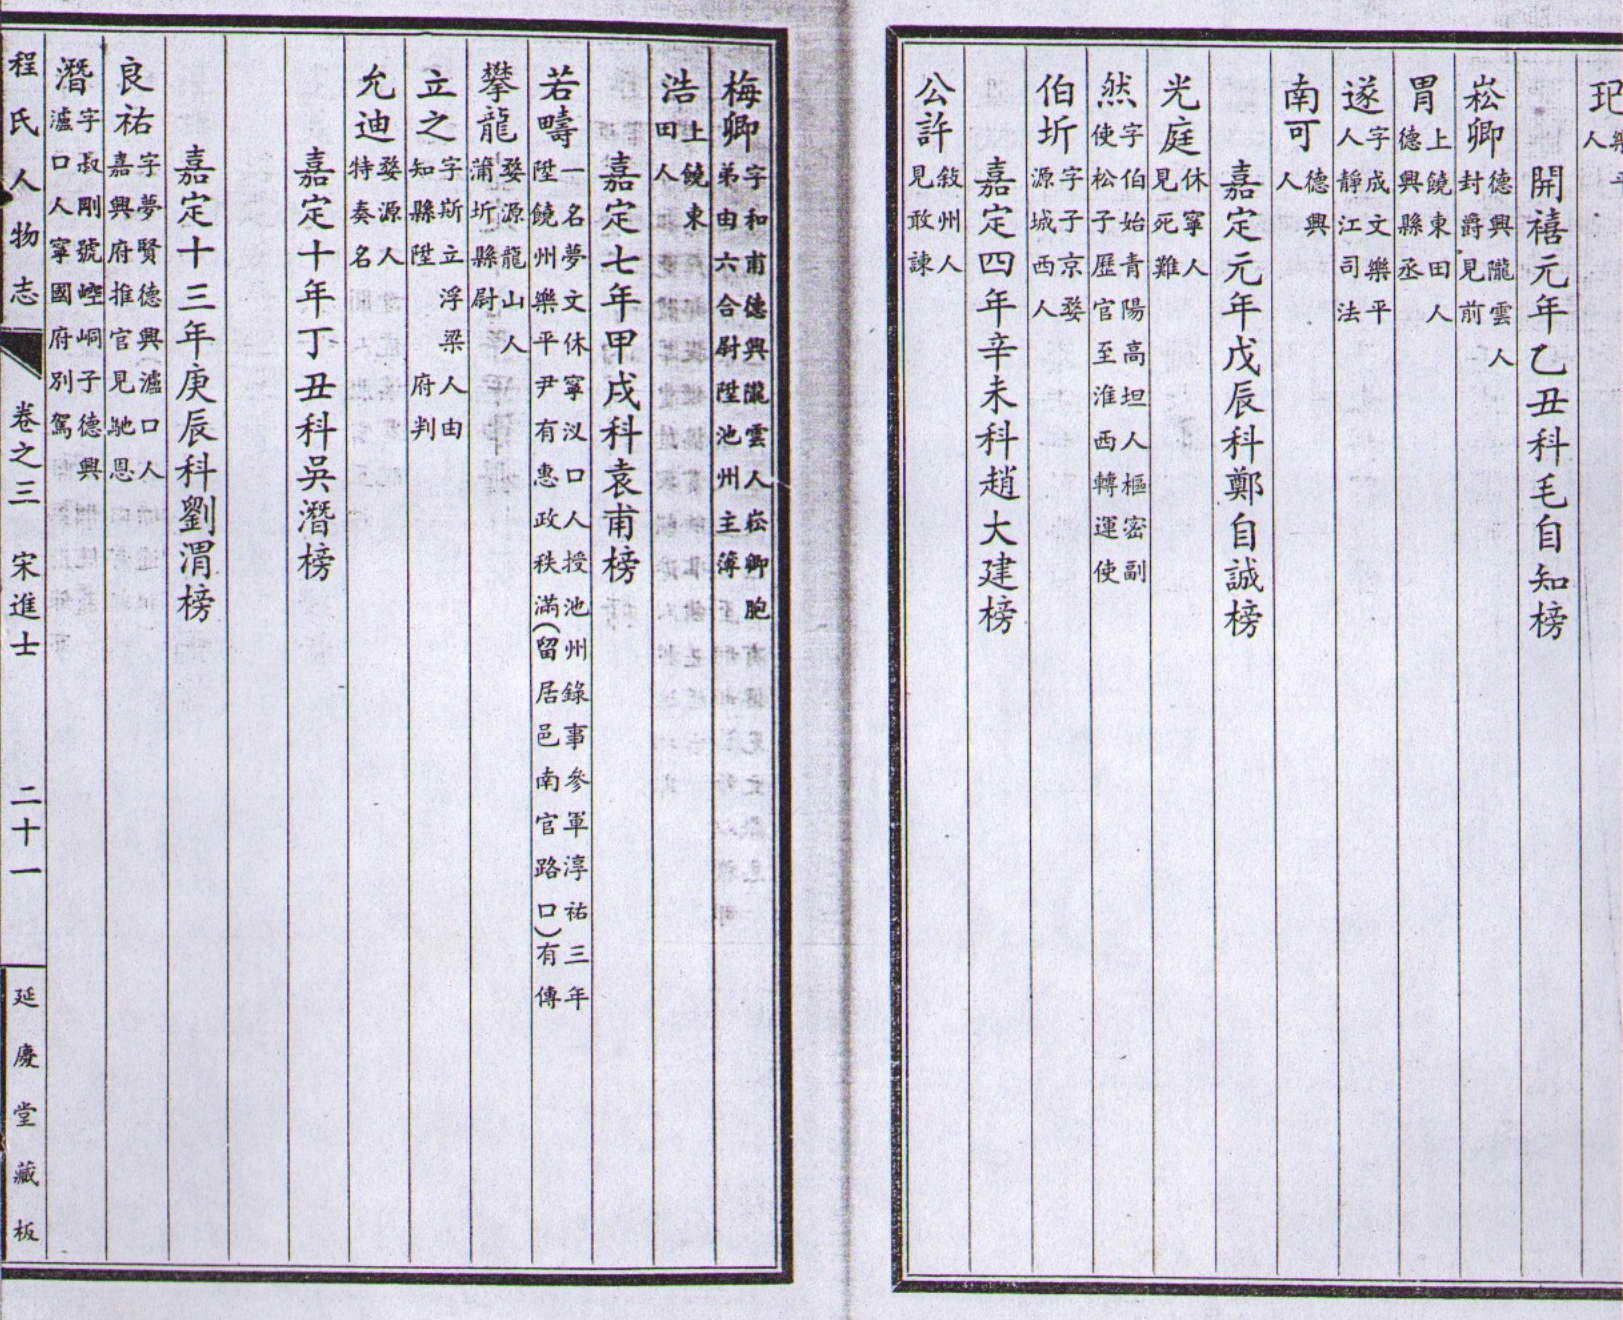 開禧元年乙丑科毛自知榜
崧卿 德興隴雲人封爵見前
胃 上饒東田人德興縣丞
遂 字成文樂平人靜江司法
南可 德興人
嘉定元年戊辰科鄭自誠榜
光庭 休寧人見死難
然 字伯始青陽高坦人樞密副使松子歷官至淮西轉運使
伯圻 字子京婺源城西人
嘉定四年辛未科趙大建榜
公許 敍州人見敢諫
梅卿 字和甫德興隴雲人崧卿胞弟由六合尉陞池州主簿
浩 上饒東田人
嘉定七年甲戌科袁甫榜
若疇 一名夢文休寧汊口人授池州錄事參軍淳祐三年陞饒州樂平尹有惠政秩滿(留居邑南官路口)有傳
攀龍 婺源龍山人蒲圻縣尉
立之 字斯立浮梁人由知縣陞府判
允迪 婺源人特奏名
嘉定十年丁丑科吳潛榜
嘉定十三年庚辰科劉渭榜
良祐 字夢賢德興瀘口人嘉興府推官見馳恩
潛 字叔剛號崆峒子德興瀘口人寧國府別駕
程氏人物志 卷之三 宋進士 二十一 延慶堂藏板